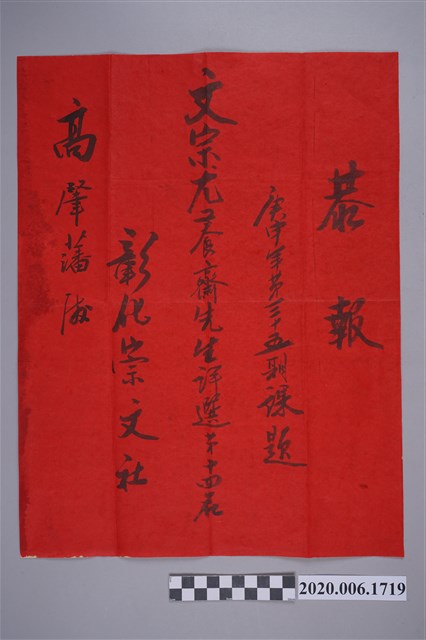 恭報
庚申年第三十五期課題
文宗尤養齋先生評選第十四名
彰化崇文社
高肇藩
2020.006.1719